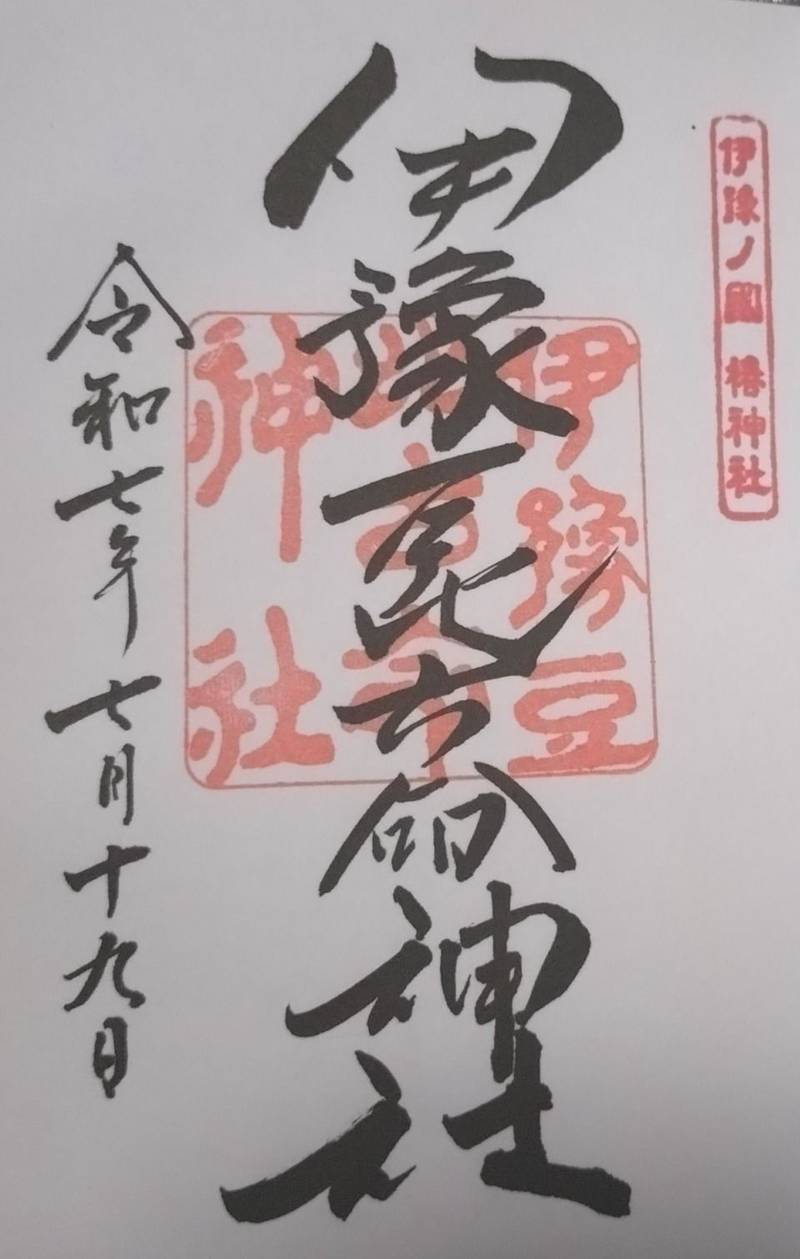 伊豫ノ國 椿神社
伊豫豆比古命神社
伊豫豆
比古命
神社
令和七年七月十九日